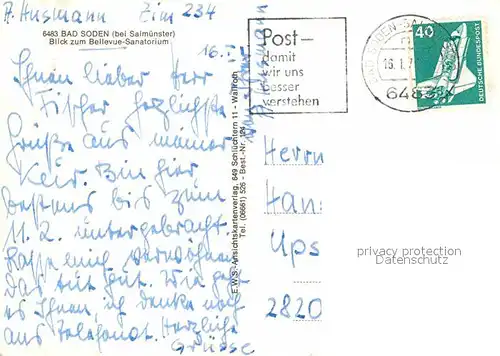 A. Husmann Zim 234
6483 BAD SODEN (bei Salmünster)
Blick zum Bellevue-Sanatorium
16.
Ihnen lieber Herr
Fischer herzlichste
Grüße aus meiner
Kur. Bin hier
bestens bis zum
11.2. untergebracht.
Lasse mich verwöhnen
Das tut gut. Wie geht
es Ihnen, ich denke noch
ans Telefonat. Herzliche
Grüsse
E.W.S.-Ansichtskartenverlag, 649 Schlüchtern 11 - Wallroth
Tel. (06661) 526 - Best.-Nr. 124
A. Husmann
Post–
damit
wir uns
besser
verstehen
BAD SODEN-SAL
16.1.7
6483
40
DEUTSCHE BUNDESPOST
Herrn
Han
Ups
2820
privacy protection
Datenschutz